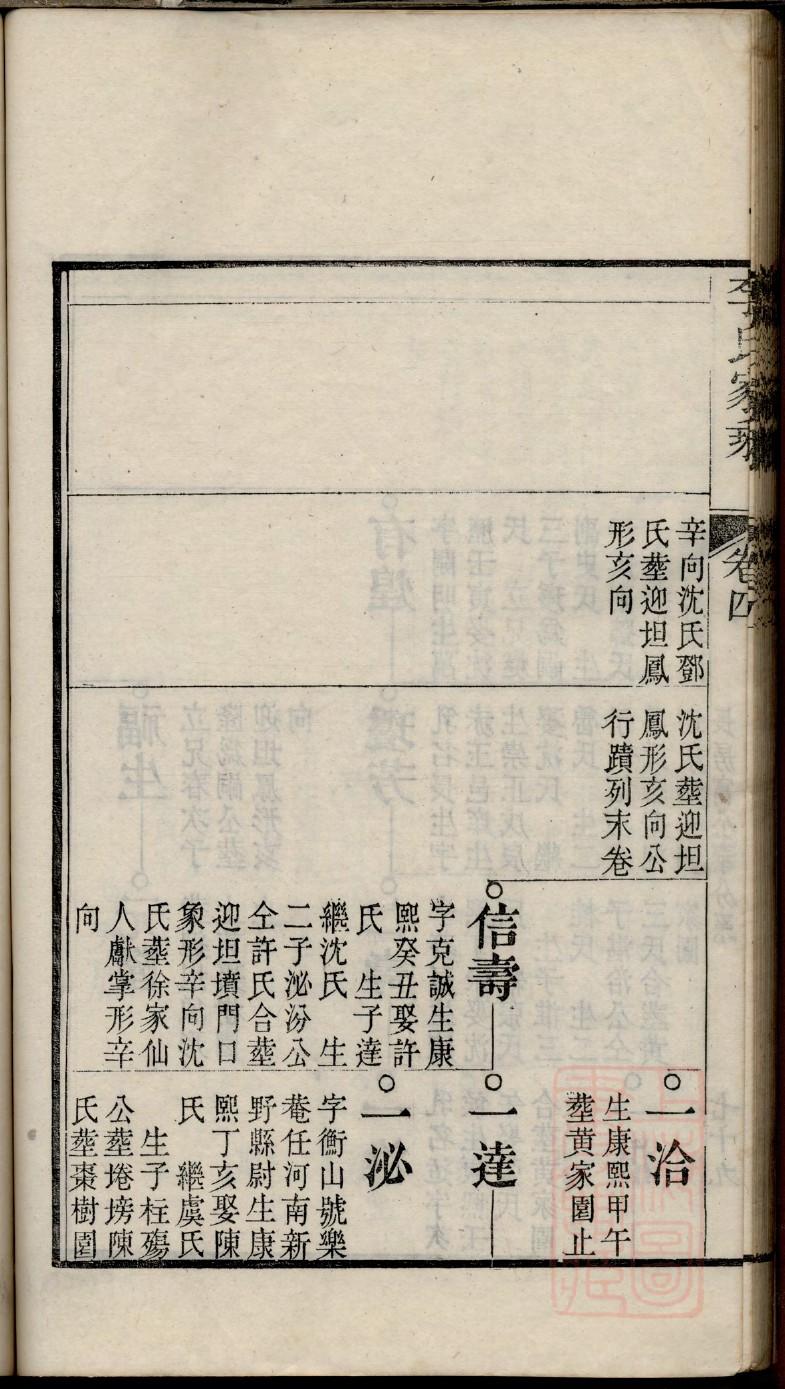 李氏家乘
卷四
辛向沈氏鄧
氏塟迎坦鳳
形亥向
沈氏塟迎坦
鳳形亥向公
行蹟列末卷
信壽
字克誠生康
熙癸丑娶許
氏　生子達
繼沈氏　生
二子泌汾公
仝許氏合塟
迎坦墳門口
象形辛向沈
氏塟徐家仙
人獻掌形辛
向
一洽
生康熙甲午
塟黄家園止
一達
一泌
字衡山號樂
菴任河南新
野縣尉生康
熙丁亥娶陳
氏　繼虞氏
生子柱殤
公塟埢塝陳
氏塟棗樹園